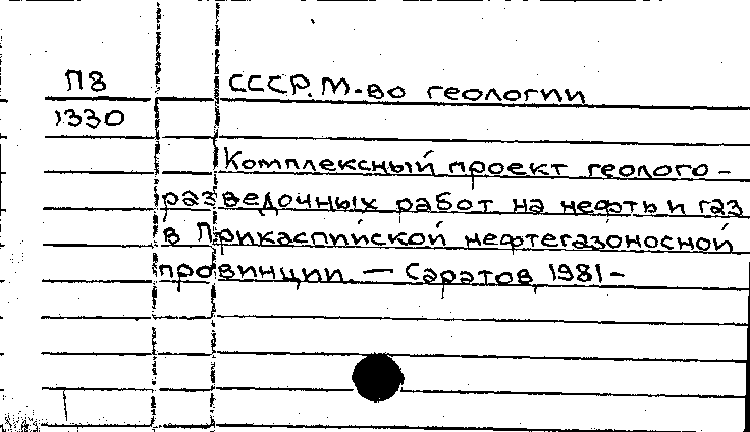 П8
СССР. М-во геологии
1330
Комплексный проект геолого-
разведочных работ на нефть и газ
в Прикаспийской нефтегазоносной
провинции. — Саратов, 1981-